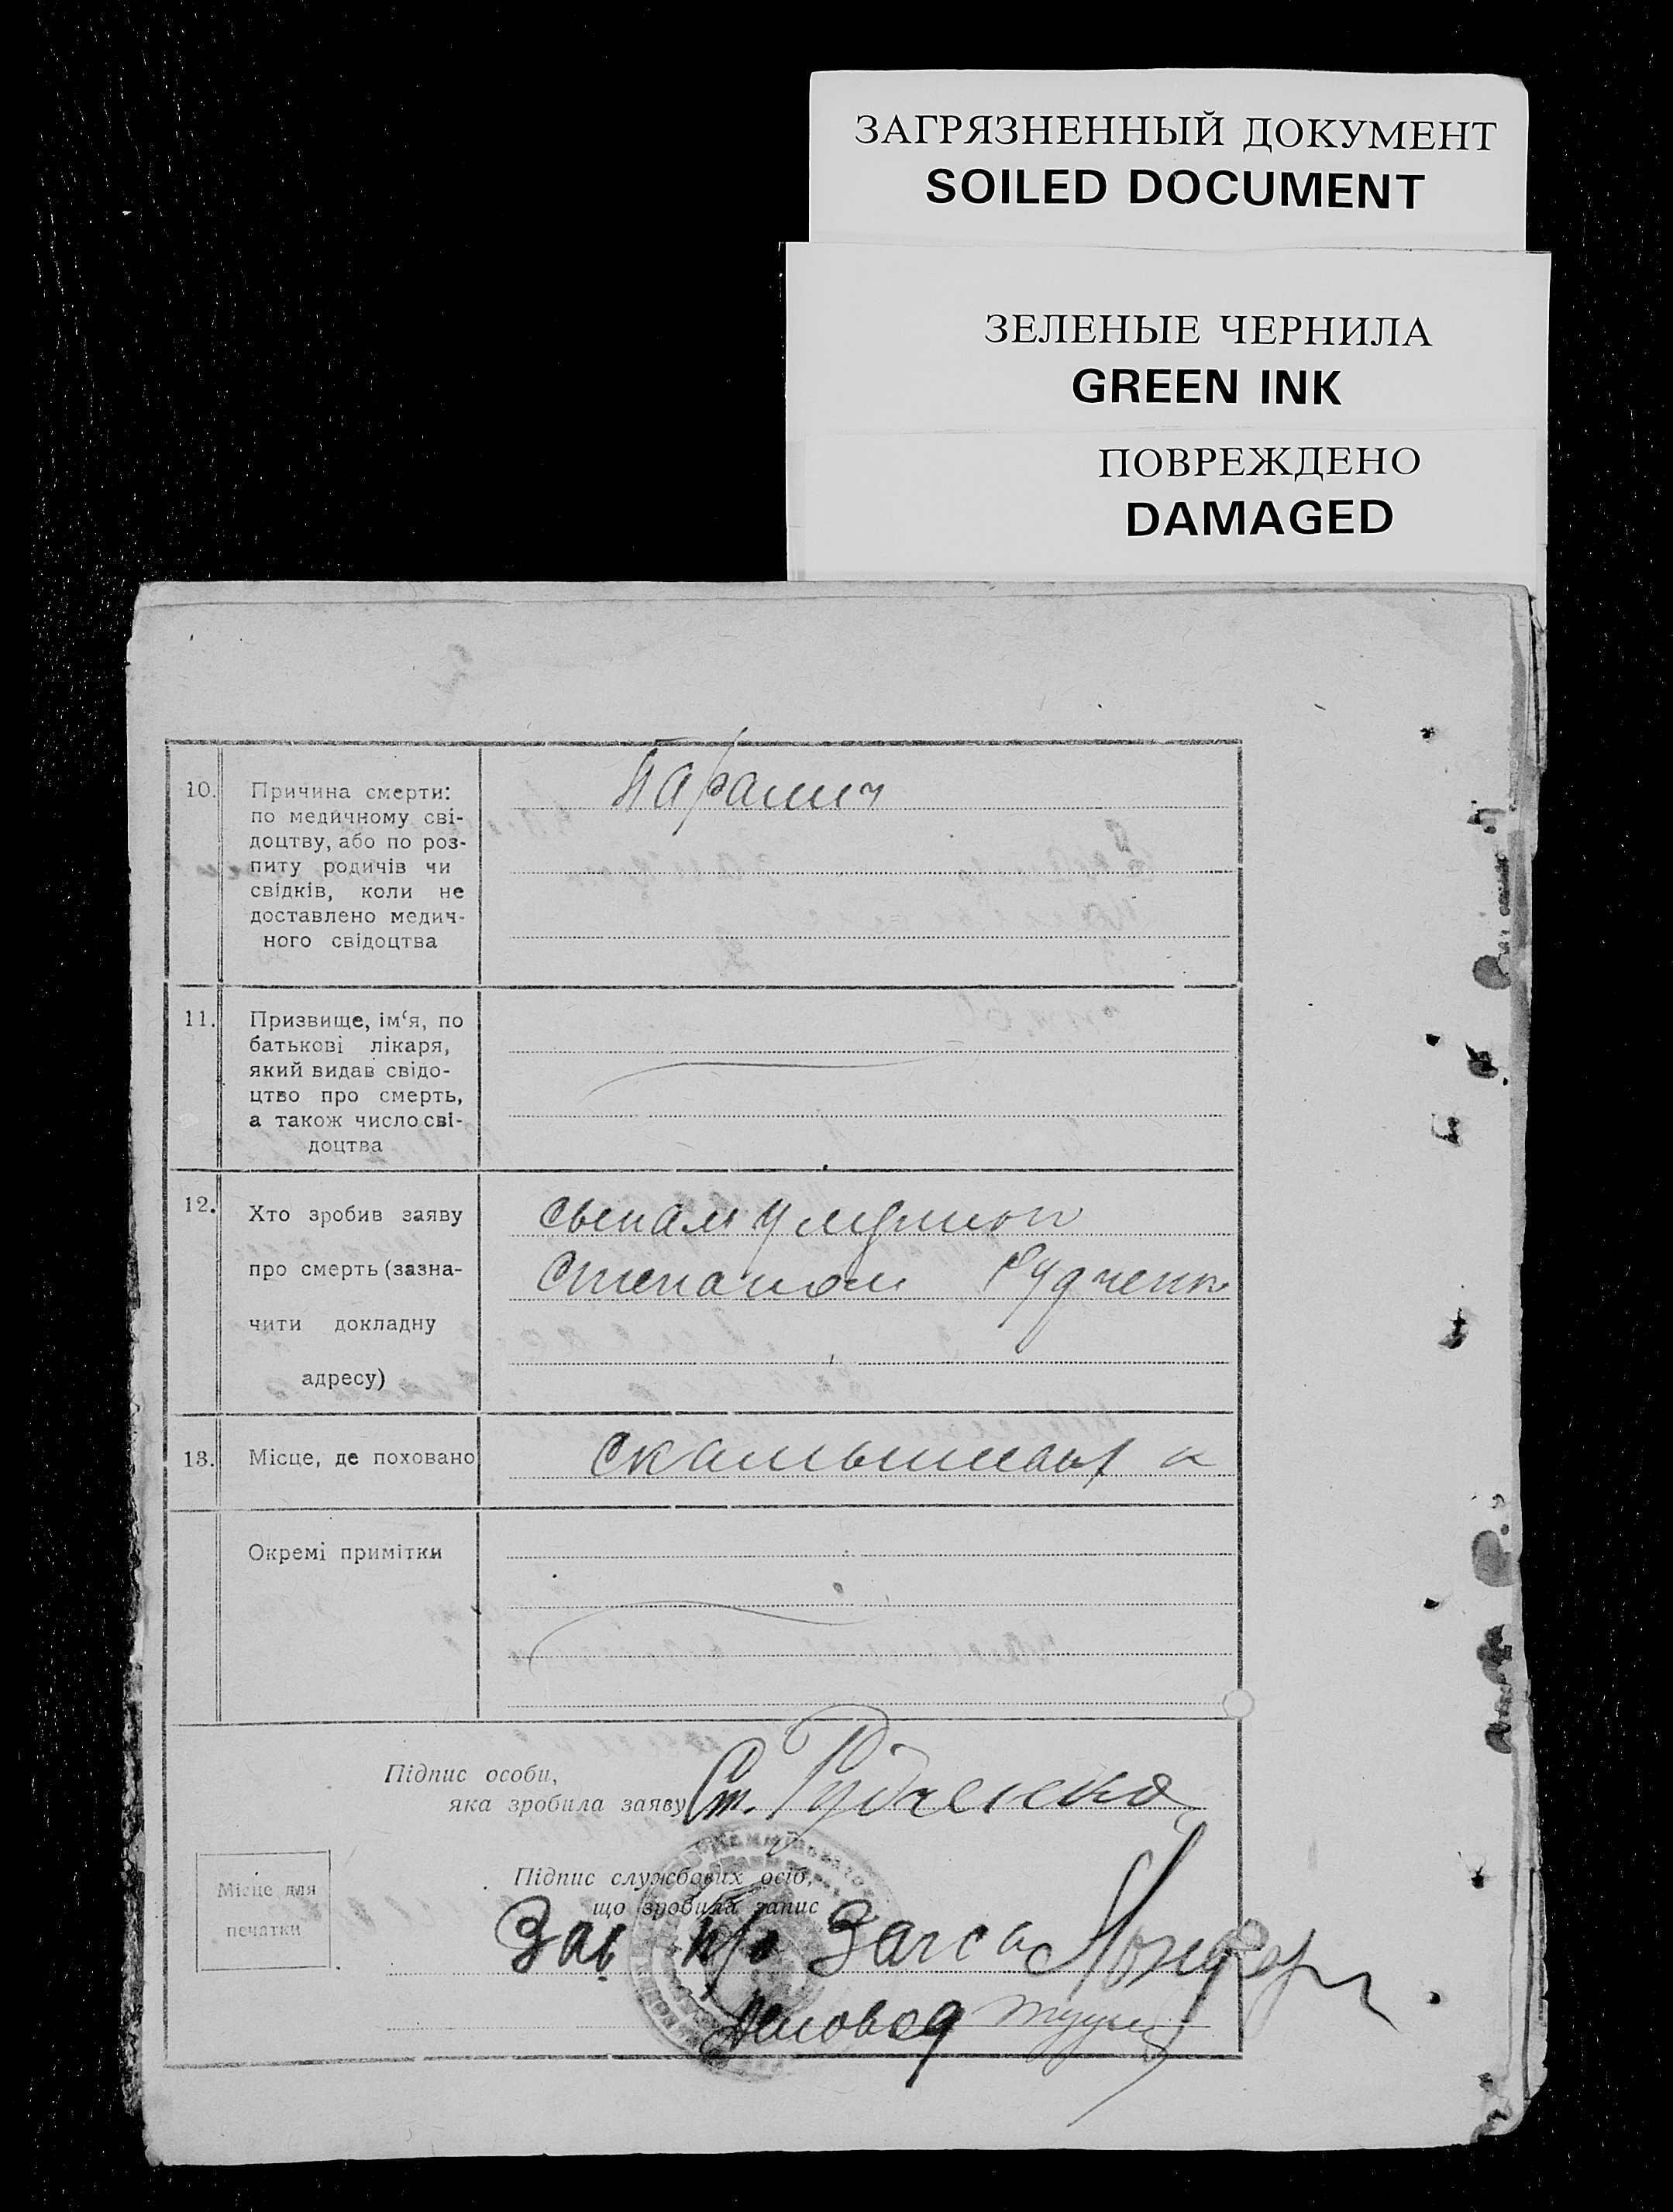 ЗАГРЯЗНЕННЫЙ ДОКУМЕНТ
SOILED DOCUMENT
ЗЕЛЕНЫЕ ЧЕРНИЛА
GREEN INK
ПОВРЕЖДЕНО
DAMAGED
10. Причина смерти:
по медичному сві-
доцтву, або по роз-
питу родичів чи
свідків, коли не
доставлено медич-
ного свідоцтва
Параліч
11. Призвище, ім‘я, по
батькові лікаря,
який видав свідо-
цтво про смерть,
а також число сві-
доцтва
12. Хто зробив заяву
про смерть (зазна-
чити докладну
адресу)
Степаном Рудченко
13. Місце, де поховано
Окремі примітки
Підпис особи,
яка зробила заяву
Ст. Рудченко
Підпис службових осіб,
що зробила запис
Місце для
печатки
Зав Загса
Діловод